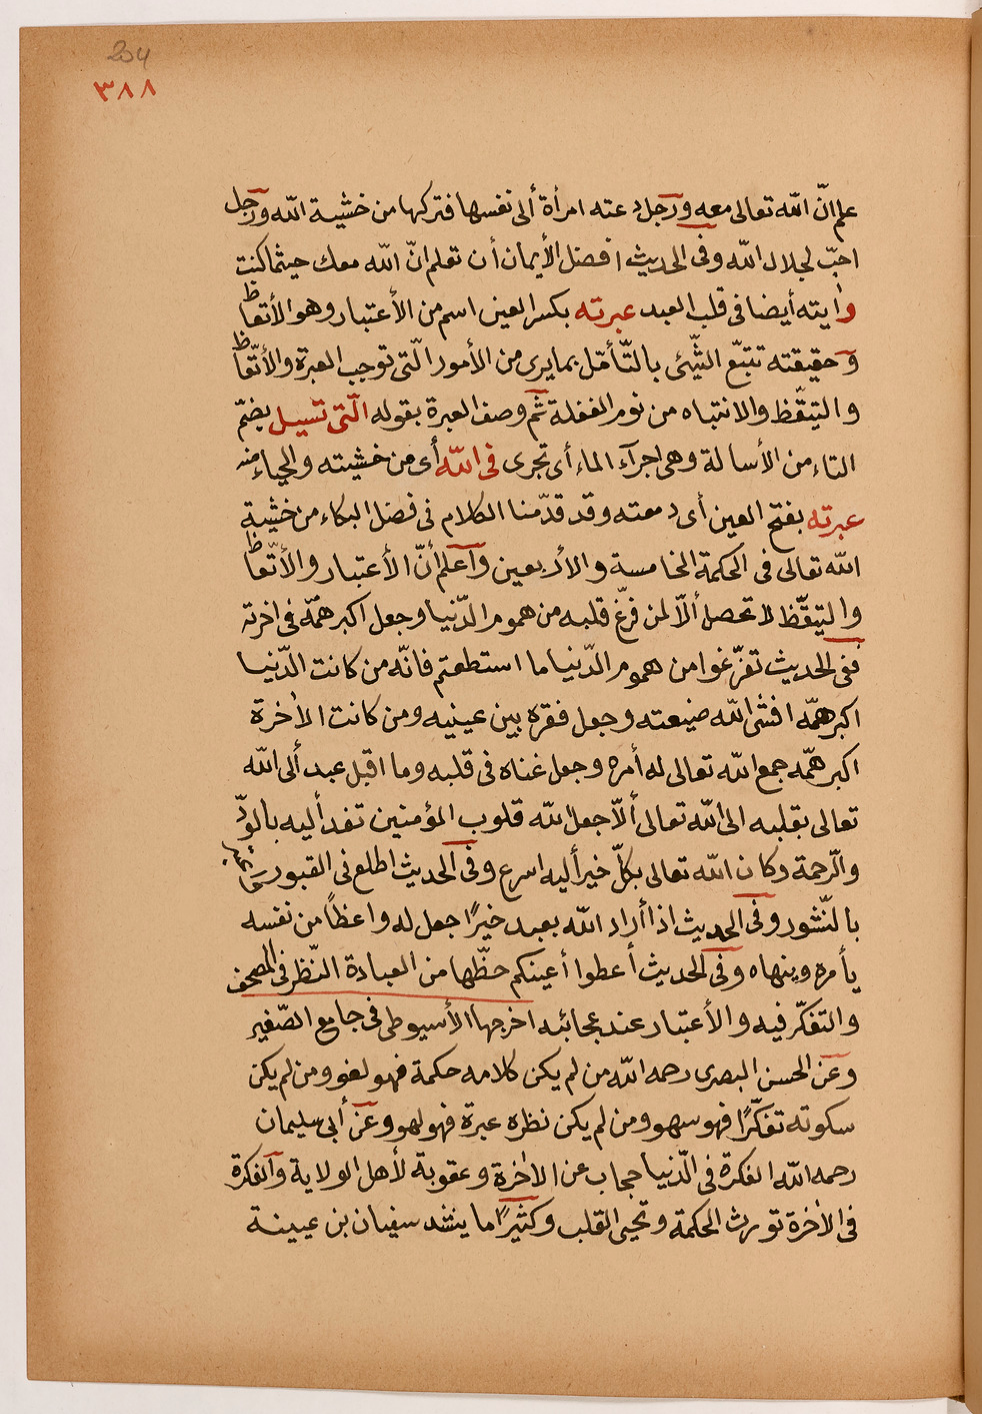 204
٣٨٨
علم انّ الله تعالى معه ورجل دعته امرأة ألى نفسها فتركها من خشية الله ورجل
احبّ لجلال الله وفى الحديث افضل الأيمان أن تعلم انّ الله معك حيثما كنت
وايته أيضا فى قلب العبد عبرته بكسر العين اسم من الأعتبار وهو الأتعاظ
وحقيقته تتبّع الشّيئ بالتّأمّل بما يرى من الأمور الّتى توجب العبرة والأتّعاظ
والتيقّظ والانتباه من نوم الغفلة ثمّ وصف العبرة بقوله الّتى تسيل بضمّ
التاء من الأسالة وهى اجرآء الماء أى تجرى فى الله أى من خشيته والحياء منه
عبرته بفتح العين أى دمعته وقد قدّمنا الكلام فى فضل البكاء من خشية
الله تعالى فى الحكمة الخامسة والأربعين وآعلم أنّ الأعتبار والأتّعاظ
والتيقّظ لا تحصل ألّا لمن فرّغ قلبه من هموم الدّنيا وجعل اكبر همّه فى اخرته
ففى الحديث تفرّغوا من هموم الدّنيا ما استطعتم فانّه من كانت الدّنيا
اكبر همّه افشى الله ضيعته وجعل فقره بين عينيه ومن كانت الاخرة
اكبر همّه جمع الله تعالى له أمره وجعل غناه فى قلبه وما اقبل عبد ألى الله
تعالى بقلبه الى الله تعالى ألّا جعل الله قلوب المؤمنين تفد أليه بالودّ
والرّحمة وكان الله تعالى بكلّ خير أليه اسرع وفى الحديث اطلع فى القبور
بالنّشور وفى الحديث اذا أراد الله بعبد خيرًا جعل له واعظًا من نفسه
يأمره وينهاه وفى الحديث أعطوا أعينكم حظّها من العبادة النّظر فى المصحف
والتفكّر فيه والأعتبار عند عجائبه اخرجها الأسيوطى فى جامع الصّغير
وعن الحسن البصرى رحمه الله من لم يكن كلامه حكمة فهو لغو ومن لم يكن
سكوته تفكّرًا فهو سهو ومن لم يكن نظره عبرة فهو لهو وعن أبى سليمان
رحمه الله الفكرة فى الدّنيا حجاب عن الاخرة وعقوبة لأهل الولاية والفكرة
فى الاخرة تورث الحكمة وتحيى القلب وكثيرًا ما ينشد سفيان بن عيينة